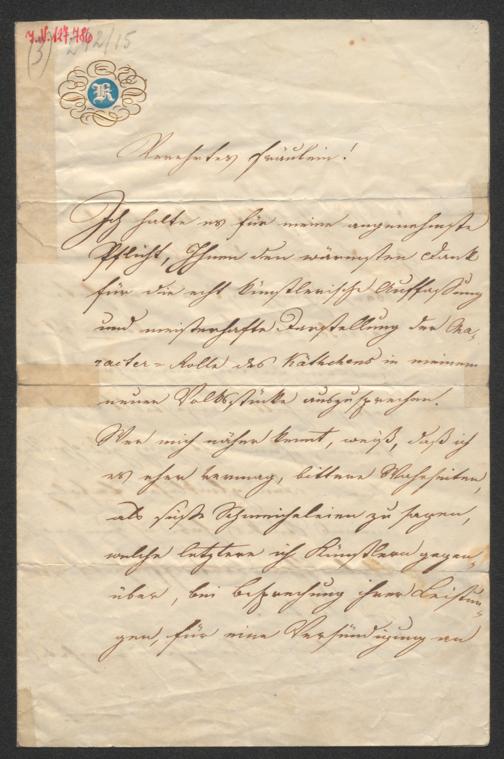 J.N. 127.786
(3) 242/15
K
Verehrtes Fräulein!
Ich halte es für meine angenehmste
Pflicht, Ihnen den wärmsten Dank
für die echt künstlerische Auffassung
und meisterhafte Darstellung der Cha-
racter-Rolle des Käthchens in meinem
neuen Volksstücke auszusprechen.
Wer mich näher kennt, weiß, daß ich
es eher vermag, bittere Wahrheiten,
als süße Schmeicheleien zu sagen,
welche letztere ich Künstlern gegen-
über, bei Besprechung ihrer Leistun-
gen, für eine Versündigung an